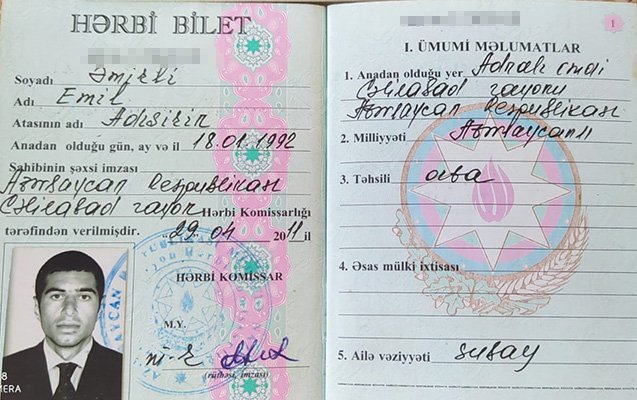 HƏRBİ BİLET
Soyadı Əmirli
Adı Emil
Atasının adı
Anadan olduğu gün, ay və il 18.01.1992
Sahibinin şəxsi imzası
Azərbaycan Respublikası
Cəlilabad rayon Hərbi Komissarlığı
tərəfindən verilmişdir. "29" 04 2011 il
HƏRBİ KOMİSSAR
M.Y.
(rütbəsi, imzası)
8
MERA
1
I. ÜMUMİ MƏLUMATLAR
1. Anadan olduğu yer
Cəlilabad rayonu
Azərbaycan Respublikası
2. Milliyyəti Azərbaycanlı
3. Təhsili orta
4. Əsas mülki ixtisası
5. Ailə vəziyyəti subay